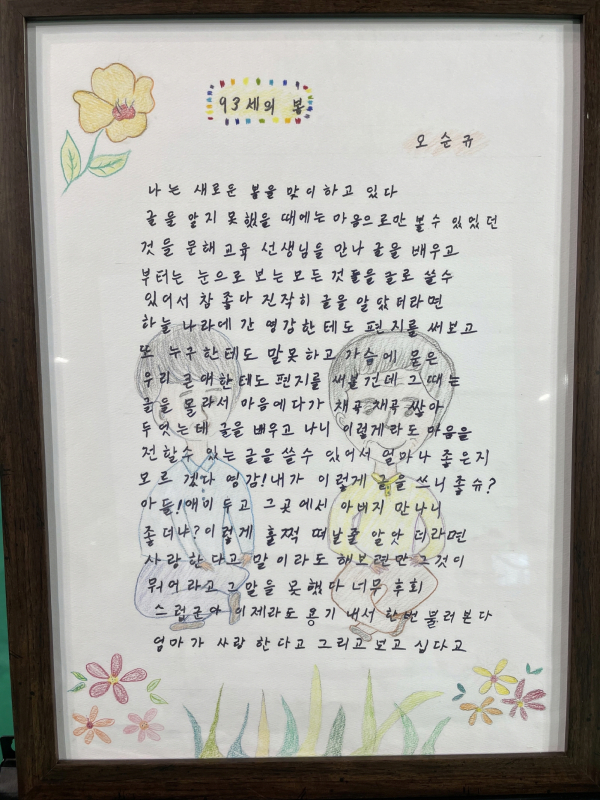 93세의 봄
오순규
나는 새로운 봄을 맞이하고 있다
글을 알지 못했을 때에는 마음으로만 볼수 있었던
것을 문해 교육 선생님을 만나 글을 배우고
부터는 눈으로 보는 모든 것들을 글로 쓸수
있어서 참 좋다 진작히 글을 알았더라면
하늘 나라에 간 영감한테도 편지를 써보고
또 누구한테도 말못하고 가슴에 묻은
우리 큰애한테도 편지를 써볼건데 그때는
글을 몰라서 마음에다가 채곡 채곡 쌓아
두엇는데 글을 배우고 나니 이렇게라도 마음을
전할수 있는 글을 쓸수 있어서 얼마나 좋은지
모르 겠다 영감! 내가 이렇게 글을 쓰니 좋슈?
아들! 애미 두고 그곳에서 아버지 만나니
좋더냐? 이렇게 훌쩍 떠날줄 알앗 더라면
사랑한다고 말이라도 해보련만 그것이
뭐어라고 그말을 못했다 너무 후회
스럽군아 이제라도 용기 내서 한번 불러본다
엄마가 사랑 한다고 그리고 보고 십다고